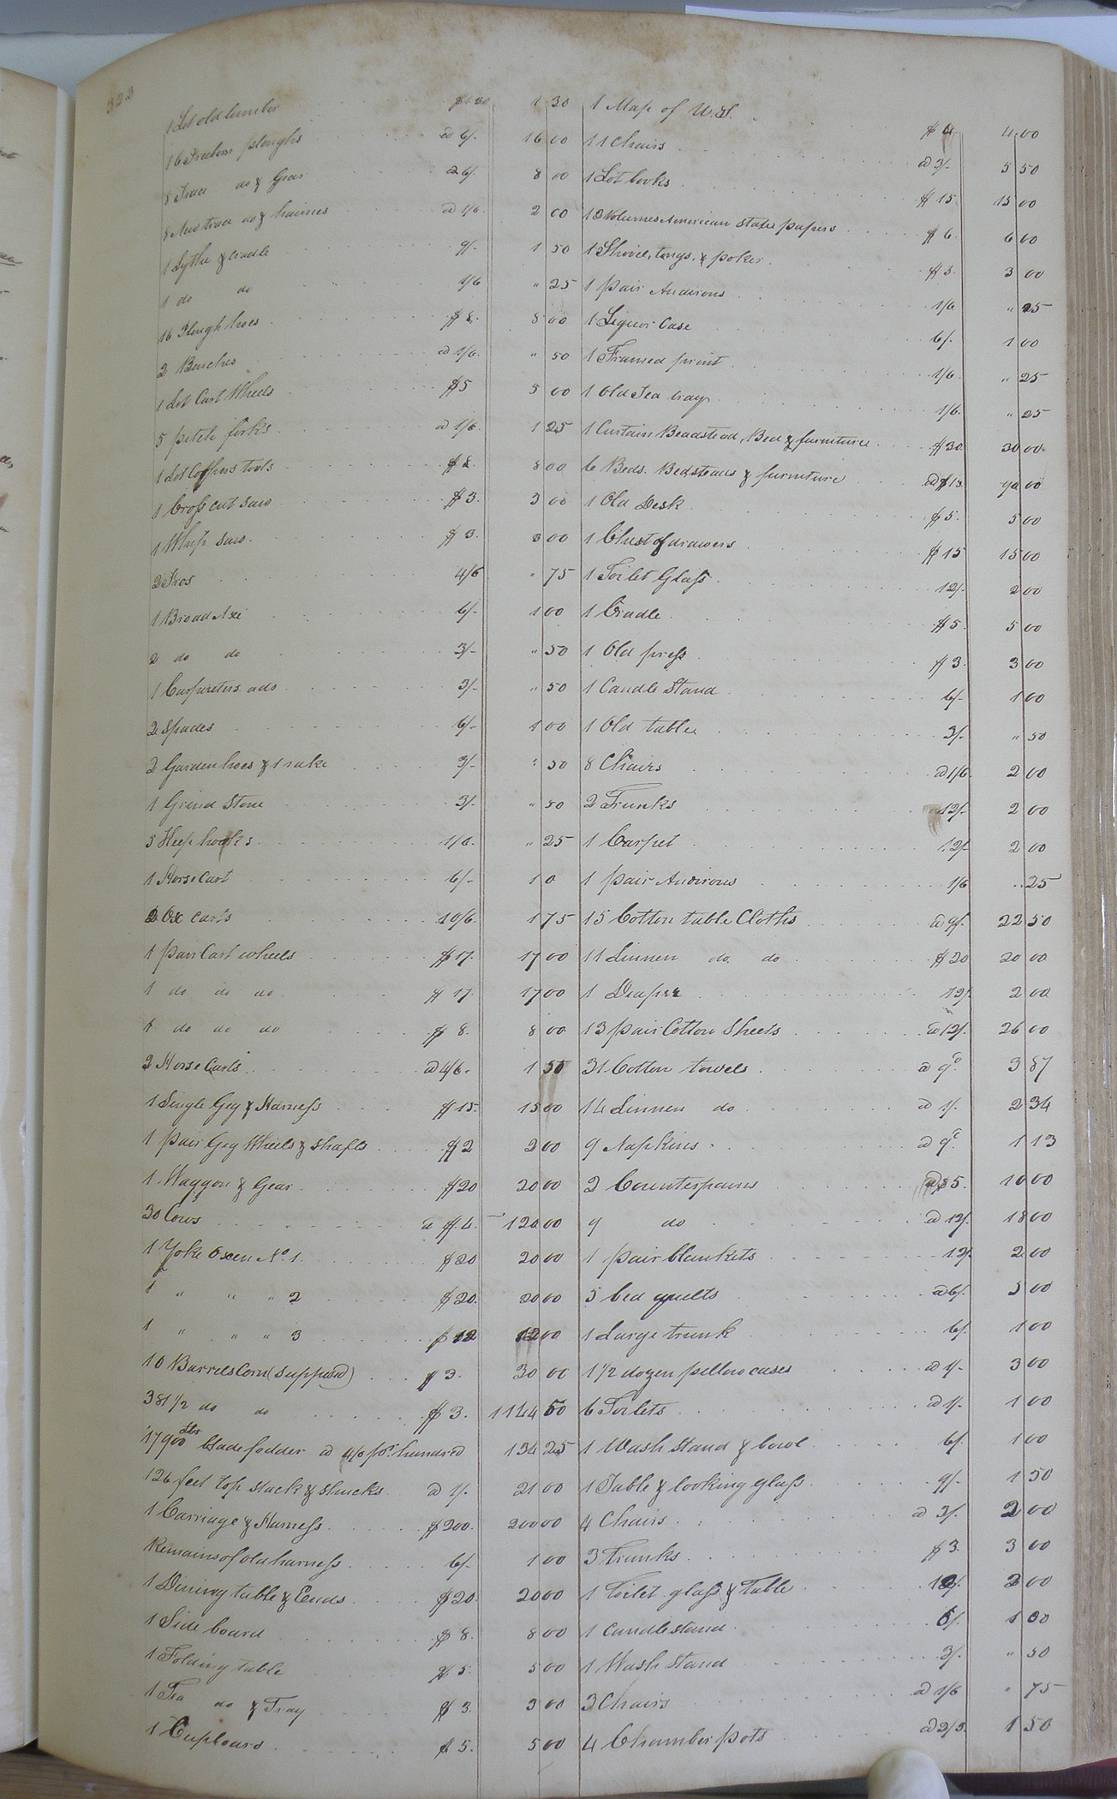 323
1 Lot old lumber $1.30 1 30
16 Freeborn ploughs @ 6/. 16 00
8 Trace do & Gear @ 6/. 8 00
8 New trace do & haimes @ 1/6. 2 00
1 Sythe & cradle 9/. 1 50
1 do do 1/6 " 25
16 Plough hoes $8. 8 00
2 Benches @ 1/6. " 50
1 Lot Cart Wheels $5 5 00
5 pitch forks @ 1/6. 1 25
1 Lot Coopers tools $8. 8 00
1 Cross cut saw $3. 3 00
1 Whip saw. $3. 3 00
2 Fros 4/6 " 75
1 Broad Axe 6/- 1 00
2 do do 3/- " 50
1 Carpenters ads 3/- " 50
2 Spades 6/- 1 00
2 Garden hoes & 1 rake 3/- " 50
1 Grind Stone 3/. " 50
5 Heep hooks 1/6. " 25
1 Horse Cart 6/- 1 0
2 Ox carts 10/6. 1 75
1 pair Cart wheels $17. 17 00
1 do do do $17. 17 00
1 do do do $8. 8 00
2 Horse Carts @ 4/6. 1 50
1 Single Gig & Harness $15. 15 00
1 pair Gig Wheels & shafts $2 2 00
1 Waggon & Gear $20 20 00
30 Cows @ $4. 120 00
1 Yoke Oxen No. 1. $20 20 00
1 " " " 2 $20. 20 00
1 " " " 3 $12 12 00
10 Barrels Corn (supposed) $3. 30 00
381 1/2 do do $3. 1144 50
17900 lbs blade fodder @ 4/6 pr. hundred 134 25
126 feet top stack & shucks @ 1/. 21 00
1 Carriage & Harness $200. 200 00
Remains of old harness 6/. 1 00
1 Dining table & Ends $20 20 00
1 Side board $8. 8 00
1 Folding table $5 5 00
1 Tea do & Tray $3. 3 00
1 Cupboard $5. 5 00
1 Map of U.S. $4 4 00
11 Chairs @ 3/. 5 50
1 Lot books $15 15 00
18 Volumes American State papers $6 6 00
1 Shovel, tongs, & poker $3. 3 00
1 pair Andirons 1/6 " 25
1 Liquor Case 6/. 1 00
1 Framed print 1/6 " 25
1 Old Tea tray 1/6. " 25
1 Curtain Beadstead, Bed & furniture $30 30 00
6 Beds. Bedsteads & furniture @ $15 90 00
1 Old Desk $5. 5 00
1 Chest of drawers $15 15 00
1 Toilet Glass 12/. 2 00
1 Cradle $5. 5 00
1 Old press $3. 3 00
1 Candle Stand 6/- 1 00
1 Old table 3/- " 50
8 Chairs @ 1/6 2 00
2 Trunks 12/- 2 00
1 Carpet 12/. 2 00
1 pair Andirons 1/6 " 25
15 Cotton table Cloths @ 9/. 22 50
11 Linnen do do $20 20 00
1 Diaper 12/. 2 00
13 pair Cotton Sheets @ 12/. 26 00
31 Cotton towels @ 9d. 3 87
14 Linnen do @ 1/. 2 34
9 Napkins @ 9d. 1 13
2 Counterpains @ $5. 10 00
9 do @ 12/. 18 00
1 pair blankets 12/. 2 00
5 bed quilts @ 6/. 5 00
1 Large trunk 6/. 1 00
1 1/2 dozen pillow cases @ 1/- 3 00
6 Toilets @ 1/. 1 00
1 Wash Stand & bowl 6/. 1 00
1 Table & looking glass 9/. 1 50
4 Chairs @ 3/. 2 00
3 Trunks $3. 3 00
1 Toilet glass & Table 12/. 2 00
1 candle stand 6/. 1 00
1 Wash stand 3/. " 50
3 Chairs @ 1/6 " 75
4 Chamber pots @ 2/3. 1 50